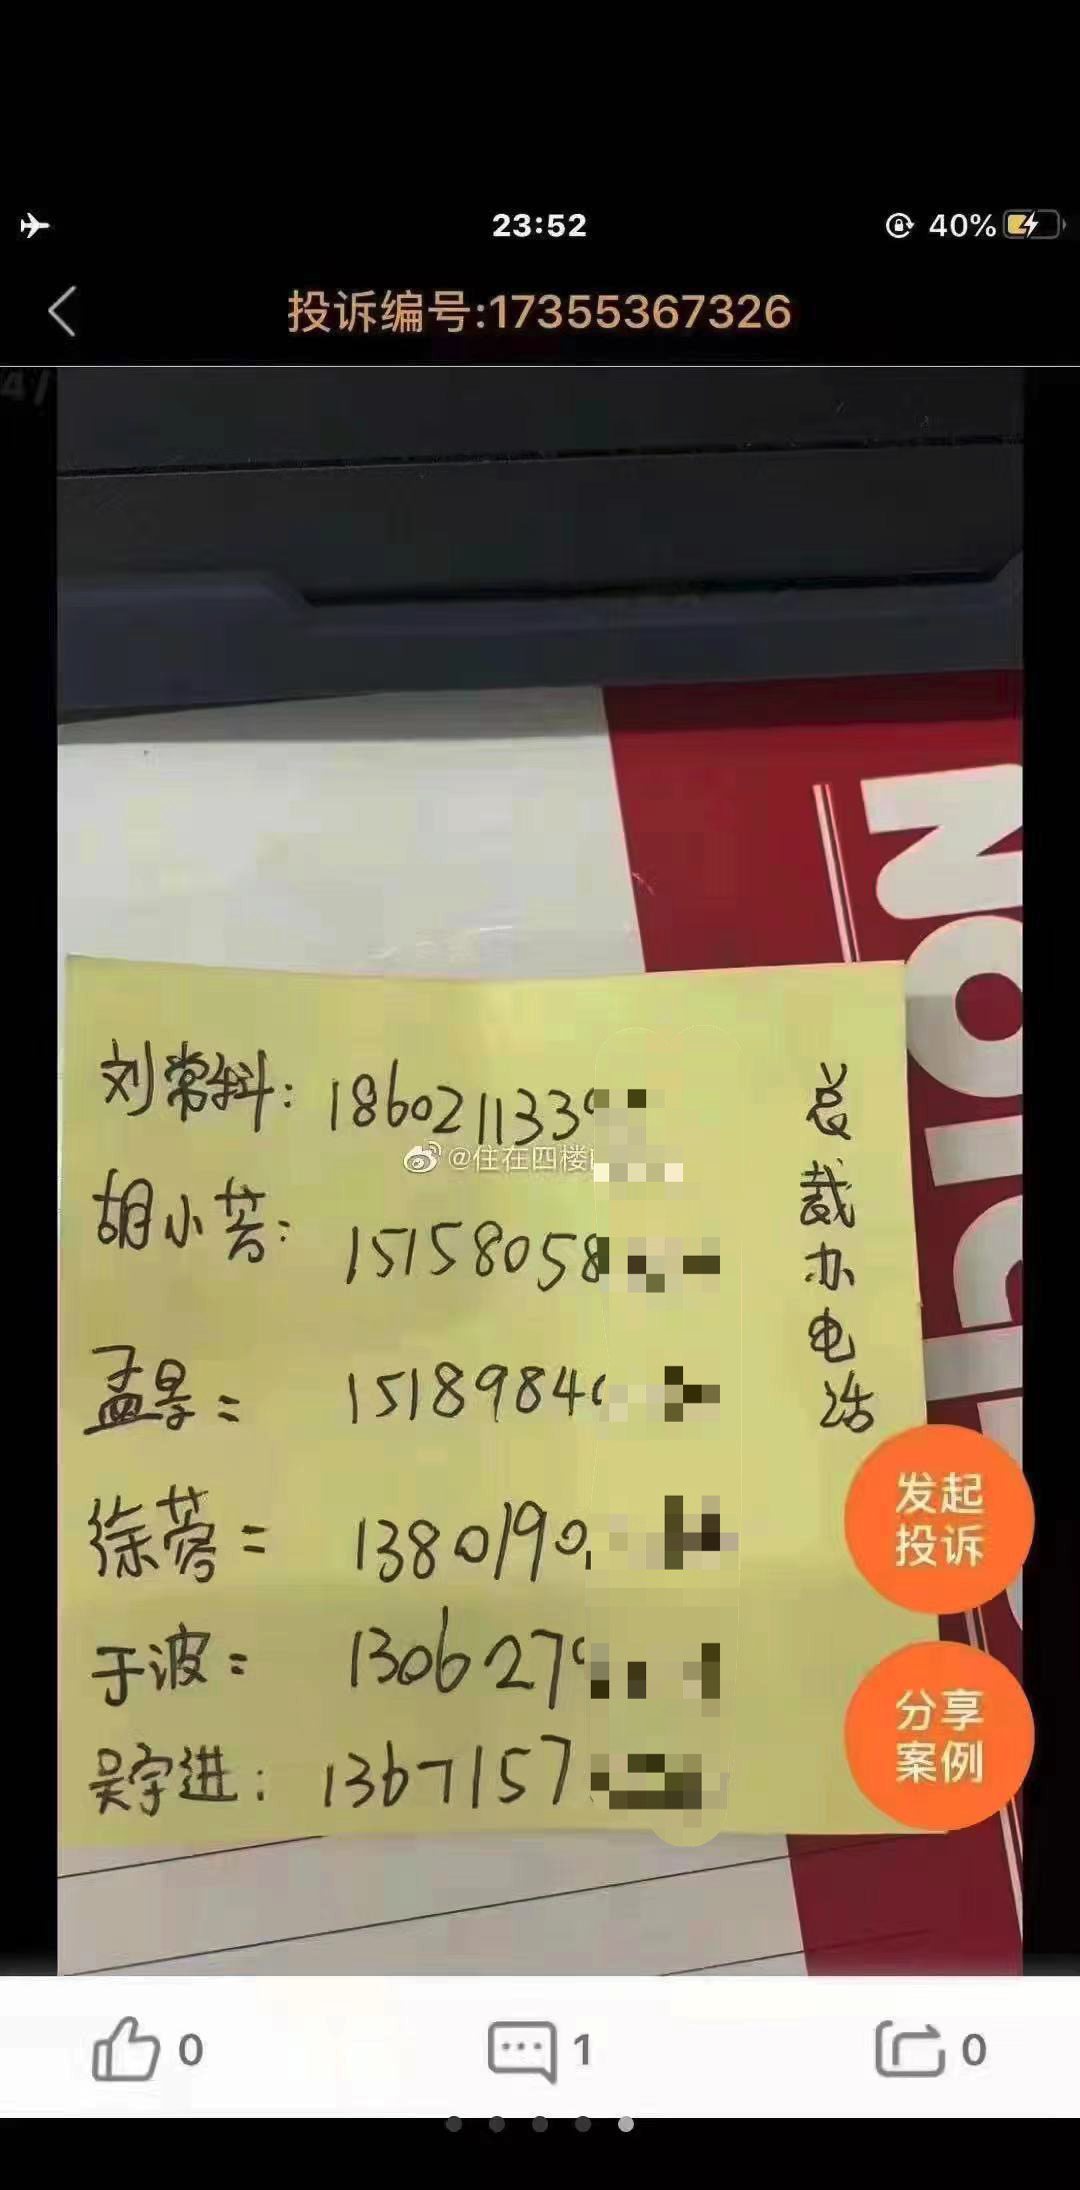 23:52
40%
投诉编号:17355367326
4/
NOTICE
刘常科：186021133
@住在四楼
胡小芳：15158058
孟景= 1518984
徐蓉= 1380190
于波= 130627
吴宇进：1367157
总裁办电话
发起
投诉
分享
案例
0
1
0